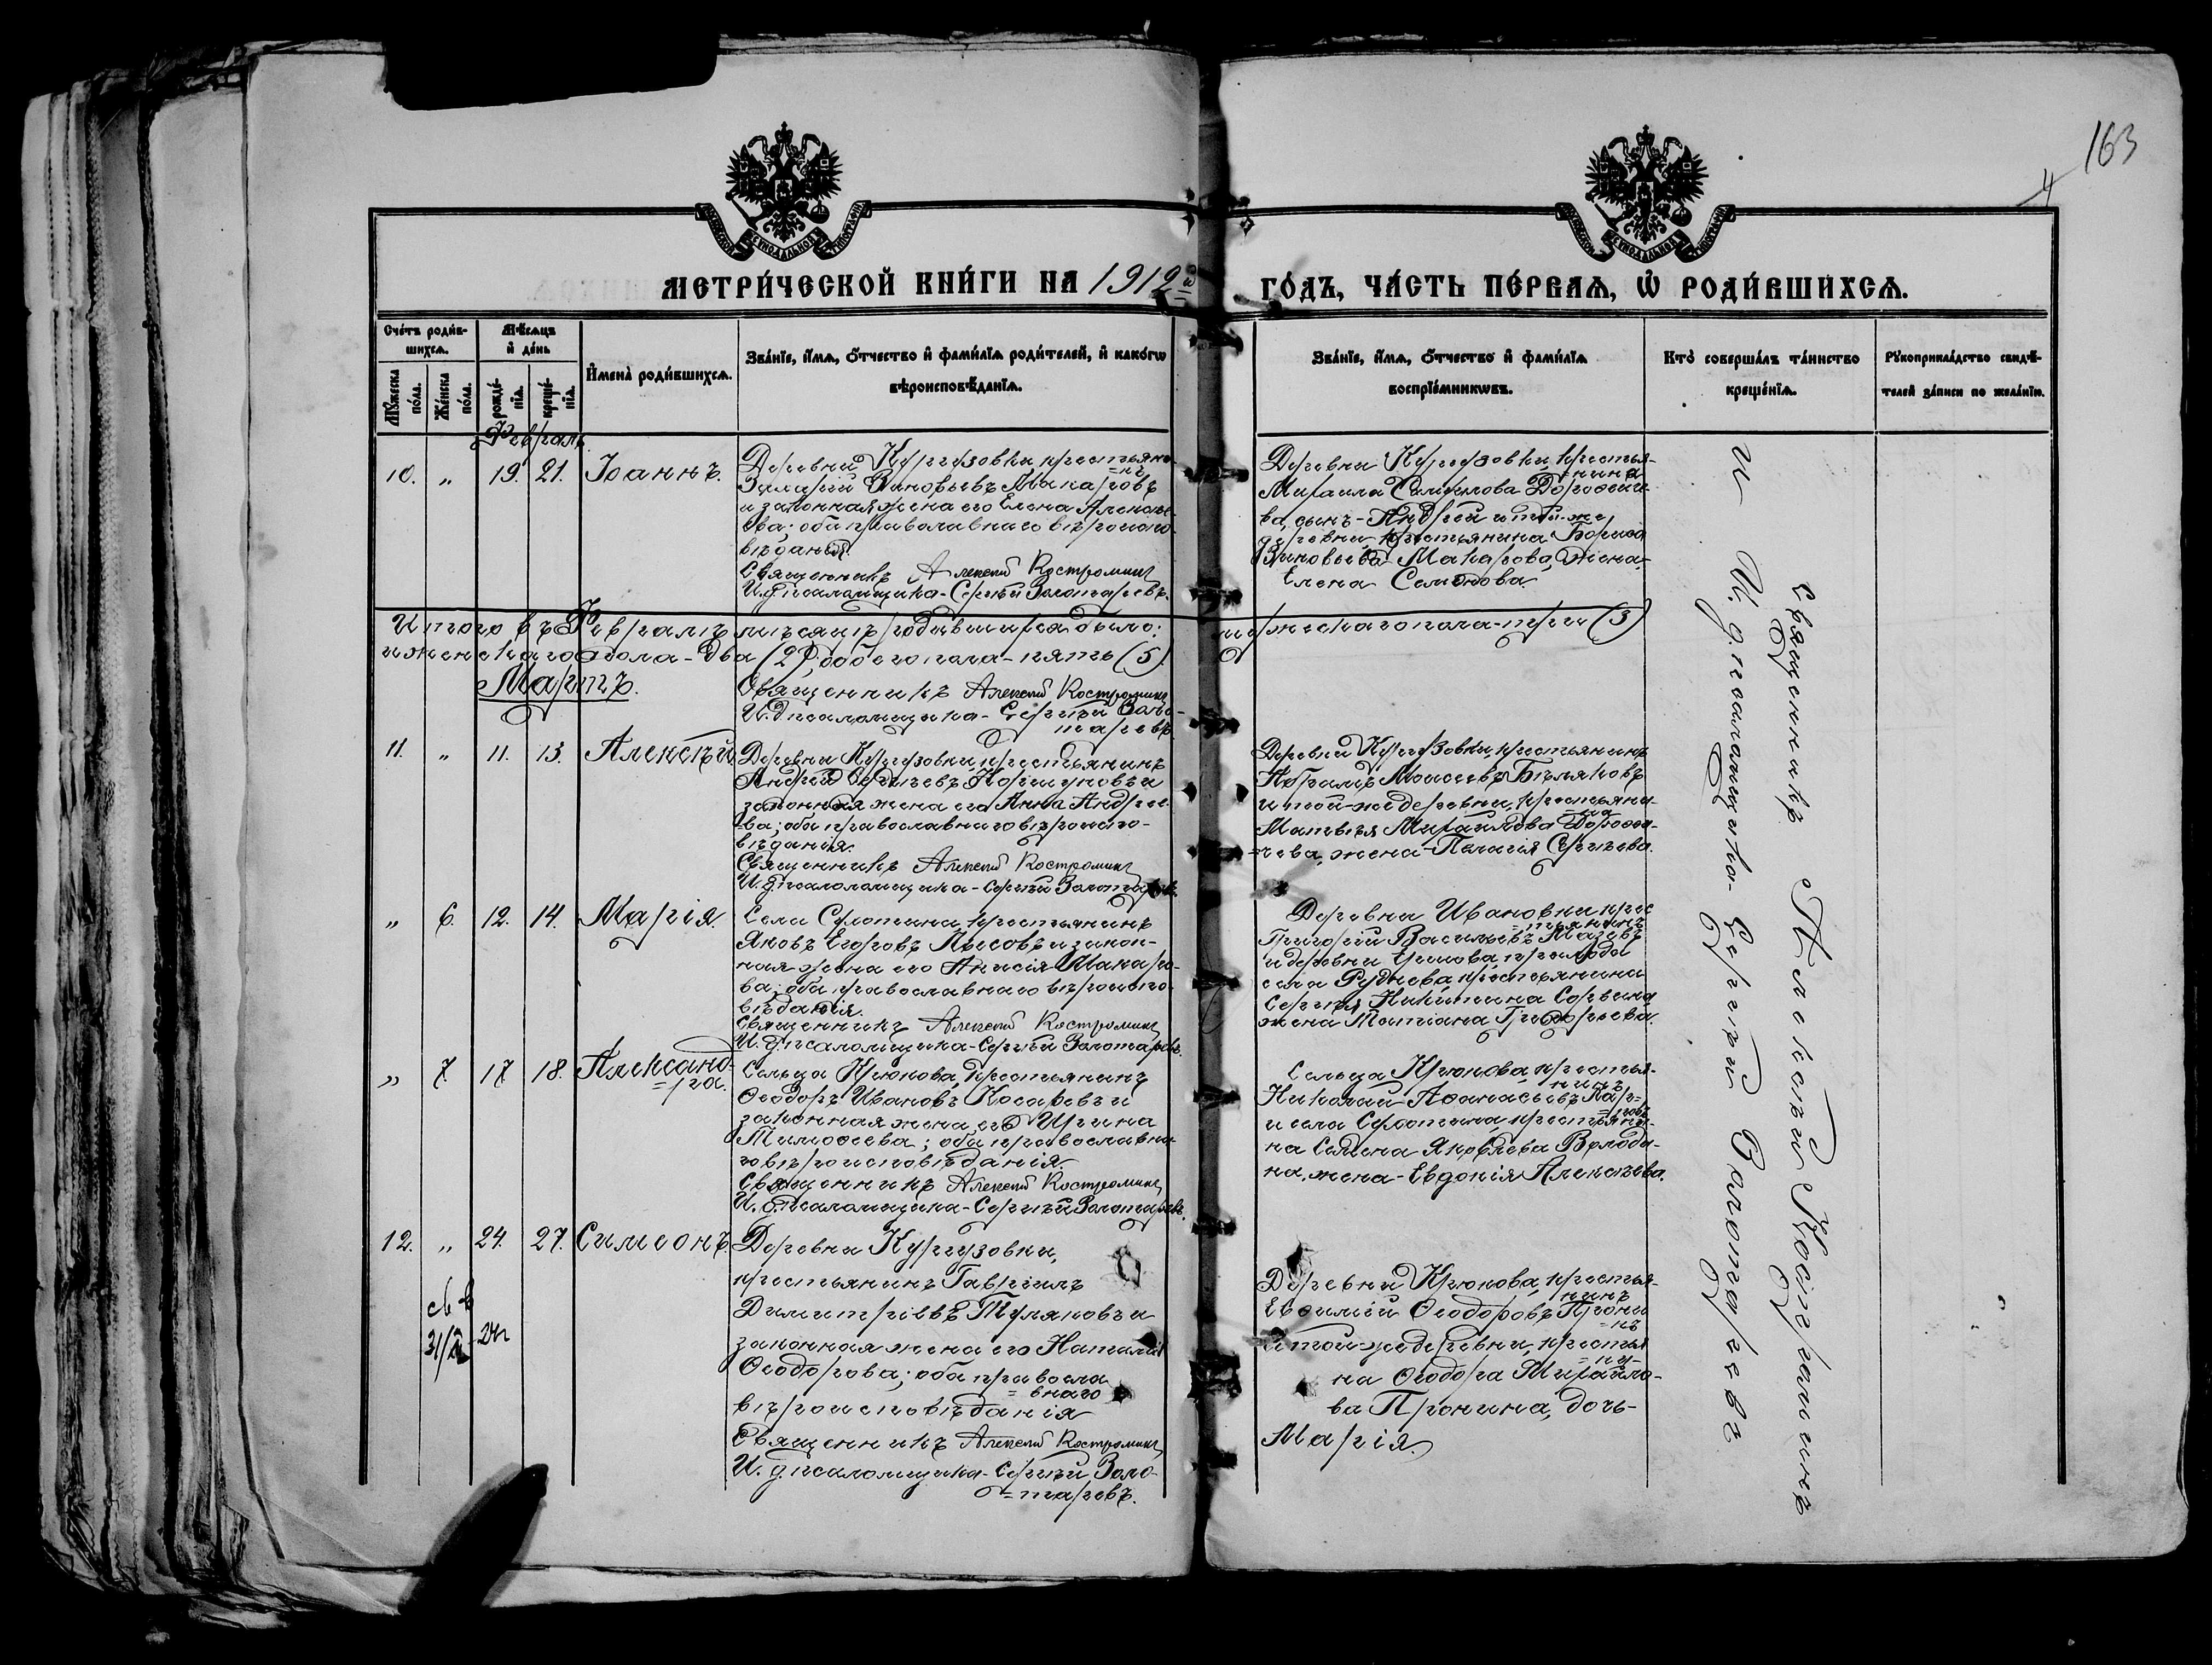 163
4
МЕТРИ́ЧЕСКОЙ КНИ́ГИ НА 1912й ГО́ДЪ, ЧА́СТЬ ПЕ́РВАѦ, Ѡ҆ РОДИ́ВШИХСѦ.
Сче́тъ роди́в-
шихсѧ.
Мꙋ́жеска
по́ла.
Же́нска
по́ла.
Мѣ́сѧцъ
и҆ де́нь
рожде́-
нїѧ.
креще́-
нїѧ.
И҆мена̀ роди́вшихсѧ.
Зва́нїе, и҆́мѧ, ѻ҆́тчество и҆ фами́лїѧ роди́телей, и҆ како́гѡ
вѣроисповѣ́данїѧ.
Зва́нїе, и҆́мѧ, ѻ҆́тчество и҆ фами́лїѧ
воспрїе́мникѡвъ.
Кто̀ соверша́лъ та́инство
креще́нїѧ.
Рꙋкоприкла́дство свидѣ́-
телей за́писи по жела́нїю.
Февраль
10. „ 19. 21. Іоаннъ.
Деревни Кургузовки, крестьяни-
=нъ
Зиновьевъ Макаровъ
и законная жена его Елена Алексѣе-
ва; оба православнаго вѣроиспо-
вѣданія.
Священникъ Алексѣй Костроминъ
И. д. псаломщика - Сергѣй Золотаревъ.
Деревни Кургузовки, крестья-
=нина
Михаила Дорофее-
ва, сынъ - Андрей и той-же
деревни, крестьянина Бориса
Зиновьева Макарова, жена-
Елена Семенова.
Итого въ Февралѣ мѣсяцѣ родившихся было: мужескаго пола - три (3)
и женскаго пола - два (2), обоего пола - пять (5).
Мартъ.
Священникъ Алексѣй Костроминъ
И. д. псаломщика - Сергѣй Золо-
таревъ.
11. „ 11. 13. Алексѣй
Деревни Кургузовки, крестьянинъ
Андрей Коршуновъ и
законная жена его Анна Андрее-
=ва; оба православнаго вѣроиспо-
вѣданія.
Священникъ Алексѣй Костроминъ
И. д. псаломщика - Сергѣй Золотаревъ.
Деревни Кургузовки, крестьянинъ
Моисеевъ Бѣляковъ
и той-же деревни, крестьяни-
на
Матвѣя Михайлова Дорофе-
=ева, жена - Пелагія Сергѣева.
„ 6. 12. 14. Марія.
Села крестьянинъ
Яковъ Егоровъ Лысовъ и закон-
ная жена его Анисія Макаро-
ва; оба православнаго вѣроиспо-
вѣданія.
Священникъ Алексѣй Костроминъ
И. д. псаломщика - Сергѣй Золотаревъ.
Деревни Ивановки крес
=тьянинъ
Григорій Васильевъ
и деревни прихода
села Руднева, крестьянина
Сергѣя Никитина
жена Татіана Григорьева.
„ 7. 17 18. Александ-
=ра.
Сельца Крюкова, крестьянинъ
Ѳеодоръ Ивановъ Косаревъ и
законная жена его Ирина
Тимоѳеева; оба православна-
го вѣроисповѣданія.
Священникъ Алексѣй Костроминъ
И. д. псаломщика - Сергѣй Золотаревъ.
Сельца Крюкова, крестья-
нинъ
Николай Аѳанасьевъ
и села крестьяни-
на Семена Яковлева Володи-
на, жена - Евдокія Алексѣева.
12. „ 24. 27. Симеонъ.
Деревни Кургузовки,
крестьянинъ Гавріилъ
Димитріевъ Туляковъ и
законная жена его Наталія
Ѳеодорова; оба правосла
=внаго
вѣроисповѣданія
Священникъ Алексѣй Костроминъ
И. д. псаломщика - Сергѣй Золо-
=таревъ.
Деревни Крюкова, крестья-
нинъ
Евѳимій Ѳеодоровъ Прони
=нъ
и той-же деревни, крестья
=ни-
на Ѳеодора Михайло-
ва Пронина, дочь-
Марія.
Священникъ Алексѣй Костроминъ
и И. д. псаломщика - Сергѣй Золотаревъ